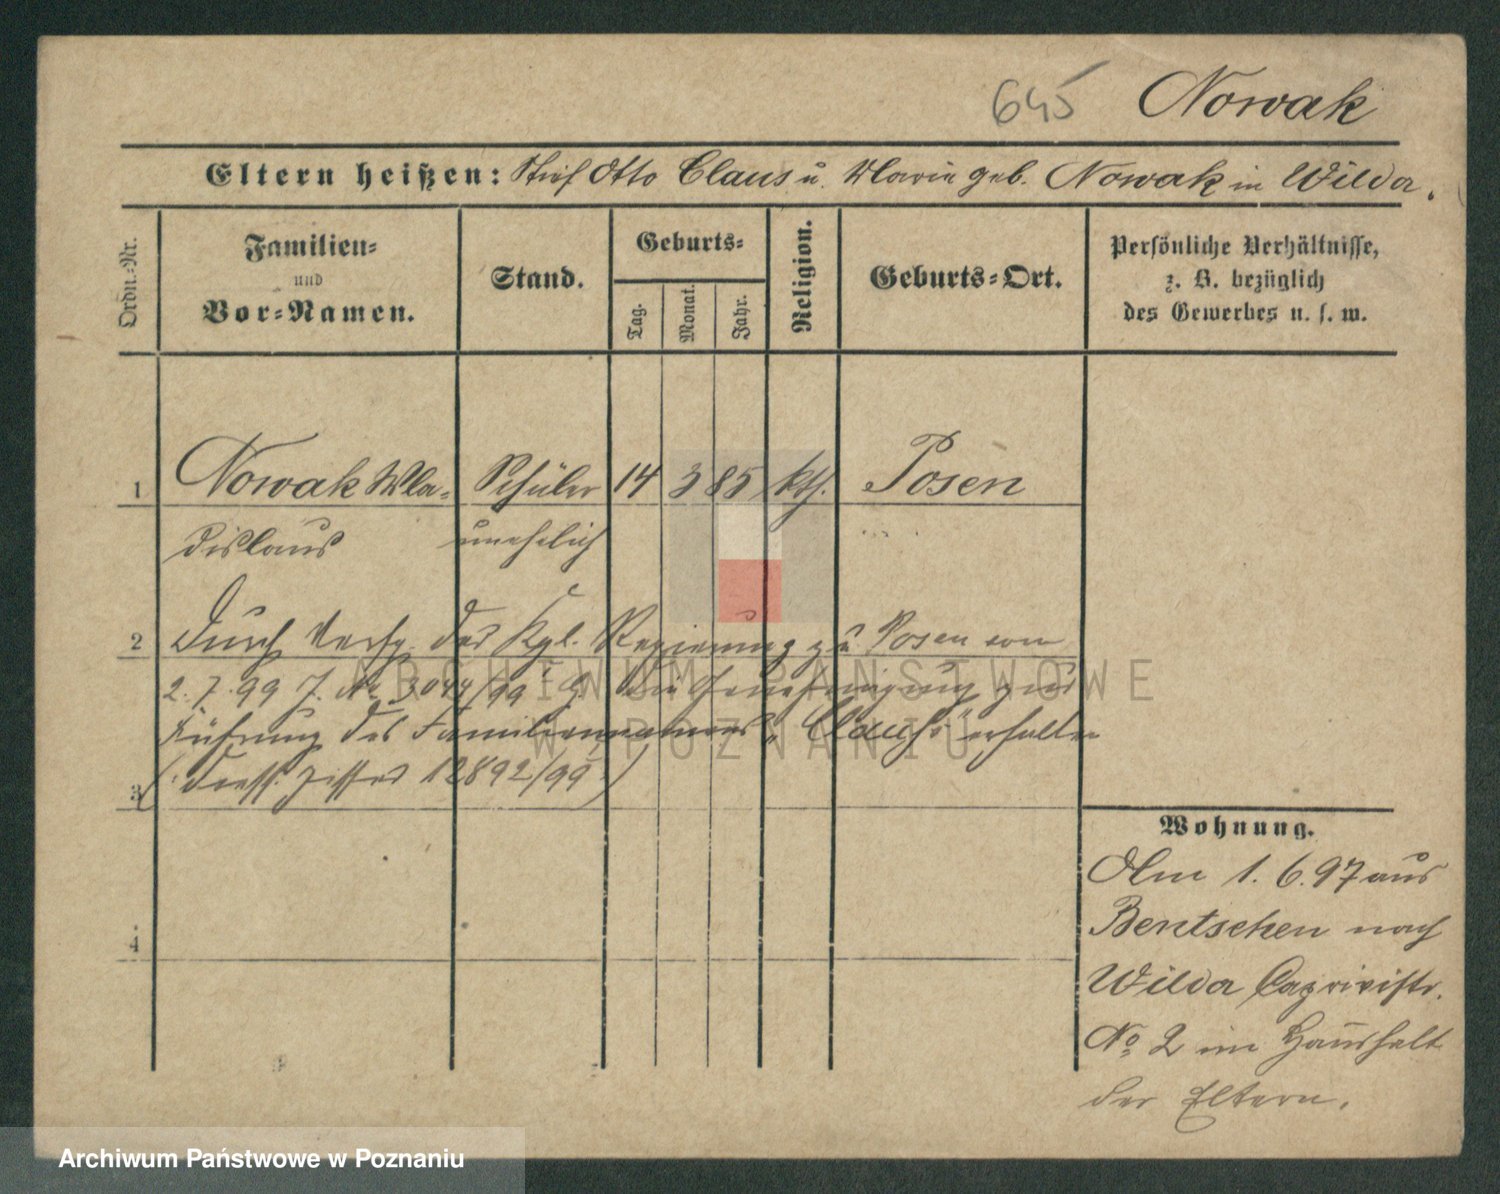 645 Nowak
Eltern heißen: Stief Otto Claus u. Marie geb. Nowak in Wilda.
Ordn.-Nr.
Familien-
und
Vor-Namen.
Stand.
Geburts-
Tag.
Monat.
Jahr.
Religion.
Geburts-Ort.
Persönliche Verhältnisse,
z. B. bezüglich
des Gewerbes u. s. w.
1 Nowak Wla- Schüler 14 3 85 kth. Posen
dislaus unehelich
2 Durch Verfg. der Kgl. Regierung zu Posen vom
2. 7. 99 J. No 3044/99 die Genehmigung zur
Führung des Familiennamens „Clauß“ erhalten
3 (12892/99)
4
Wohnung.
Am 1. 6. 97 aus
Bentschen nach
Wilda Caprivistr.
No 2 im Haushalt
der Eltern.
ARCHIWUM PAŃSTWOWE
W POZNANIU
Archiwum Państwowe w Poznaniu